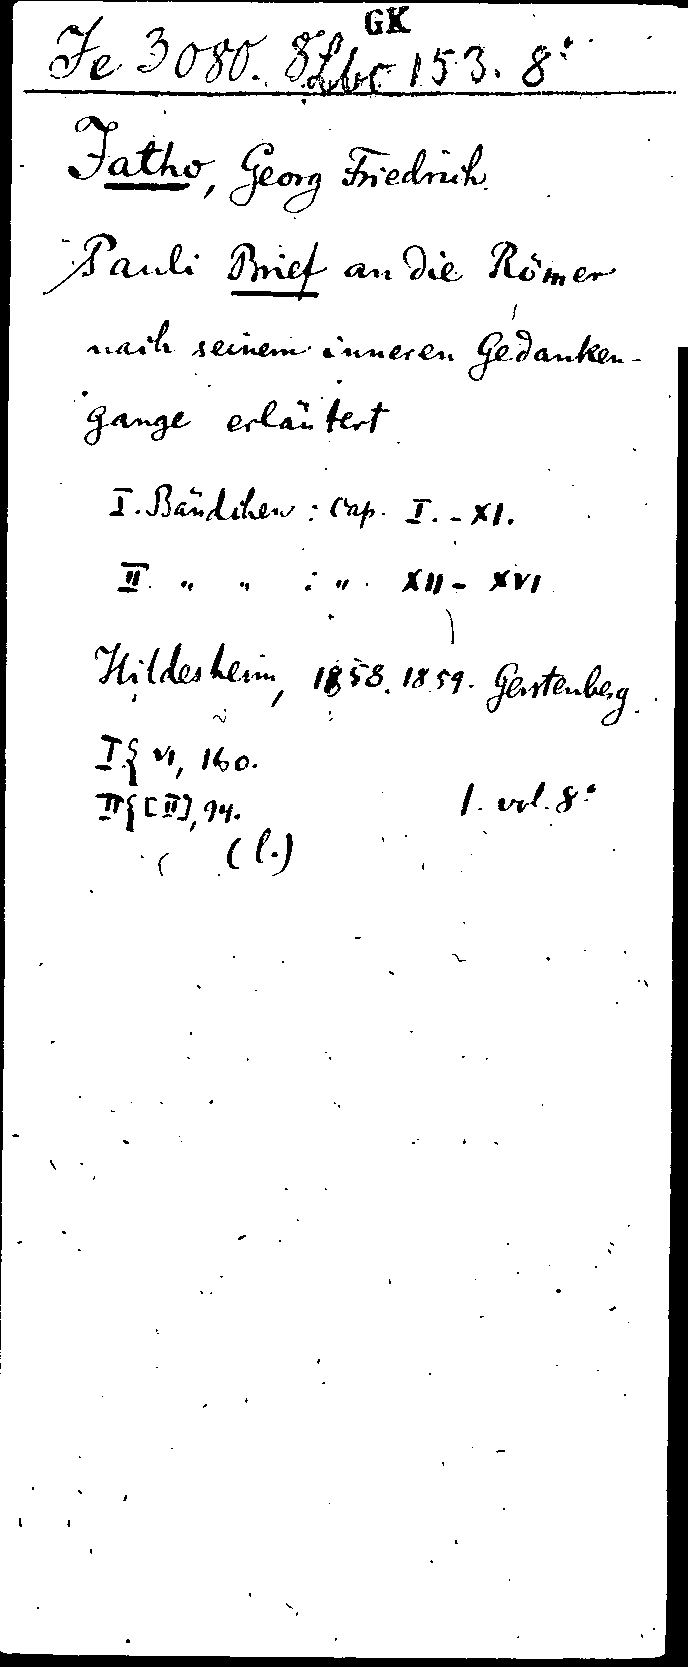 GK
Je 3080. 8° Lbc 153. 8°
Jatho, Georg Friedrich
Pauli Brief an die Römer
nach seinem inneren Gedanken-
gange erläutert
I. Bändchen : Cap. I. - XI.
II. " " : " XII - XVI
Hildesheim, 1858. 1859. Gerstenberg.
I { VI, 160.
II { [II], 94.
1. vol. 8°
(l.)